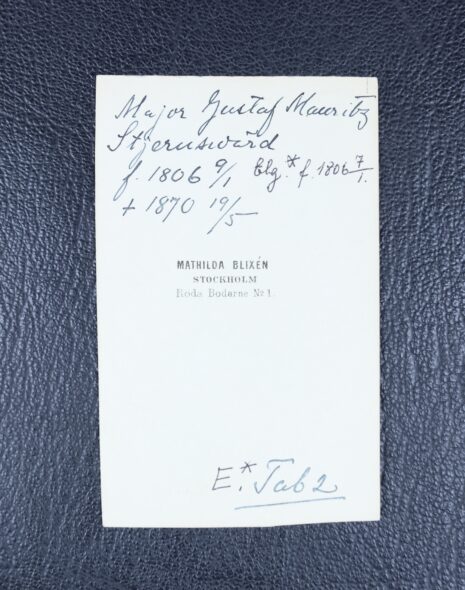 Major Gustaf Mauritz
Stjernswärd
f. 1806 9/1 Elg.* f. 1806 7/1.
+ 1870 19/5
MATHILDA BLIXÉN
STOCKHOLM
Röda Bodarne No 1.
E.* Tab 2